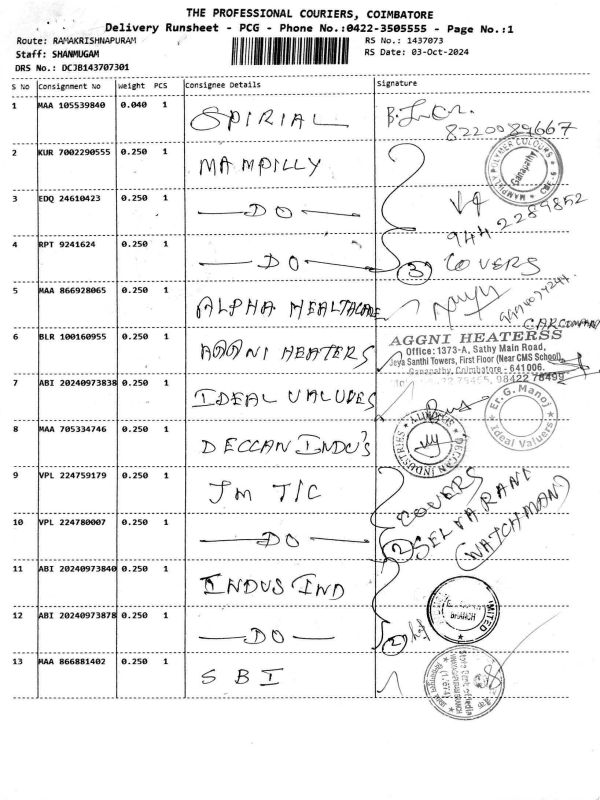 THE PROFESSIONAL COURIERS, COIMBATORE
Delivery Runsheet - PCG - Phone No.:0422-3505555 - Page No.:1
Route: RAMAKRISHNAPURAM RS No.: 1437073
Staff: SHANMUGAM RS Date: 03-Oct-2024
DRS No.: DCJB143707301
S No Consignment No Weight PCS Consignee Details Signature
1 MAA 105539840 0.040 1 SPIRIAL
8220089667
2 KUR 7002290555 0.250 1 MAMPILLY
MAMPILLY POLYMER COLOURS
Ganapathy
CBE-6
3 EDQ 24610423 0.250 1 DO
944 2289852
4 RPT 9241624 0.250 1 DO
3 COVERS
5 MAA 866928065 0.250 1 ALPHA HEALTHCARE
6 BLR 100160955 0.250 1 AGGNI HEATERS
AGGNI HEATERSS
Office: 1373-A, Sathy Main Road,
Jeya Santhi Towers, First Floor (Near CMS School)
Ganapathy, Coimbatore - 641006.
98422 78499
7 ABI 20240973838 0.250 1 IDEAL VALUDES
Er. G. Manoj
Ideal Valuers
8 MAA 705334746 0.250 1 DECCAN INDU'S
DECCAN INDUSTRIES
9 VPL 224759179 0.250 1 JM TIC
COVERS
10 VPL 224780007 0.250 1 DO
2 SELVARANI
(WATCHMAN)
11 ABI 20240973840 0.250 1 INDUS IND
BRANCH
LIMITED
12 ABI 20240973878 0.250 1 DO
2
13 MAA 866881402 0.250 1 SBI
State Bank of India